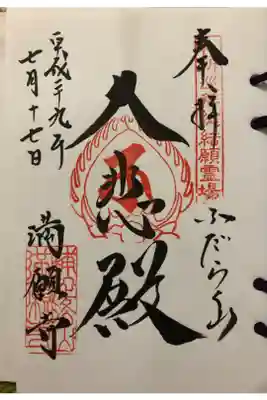 奉拝
結願霊場
ふだらく山
大悲殿
平成二十九年
七月十七日
満願寺